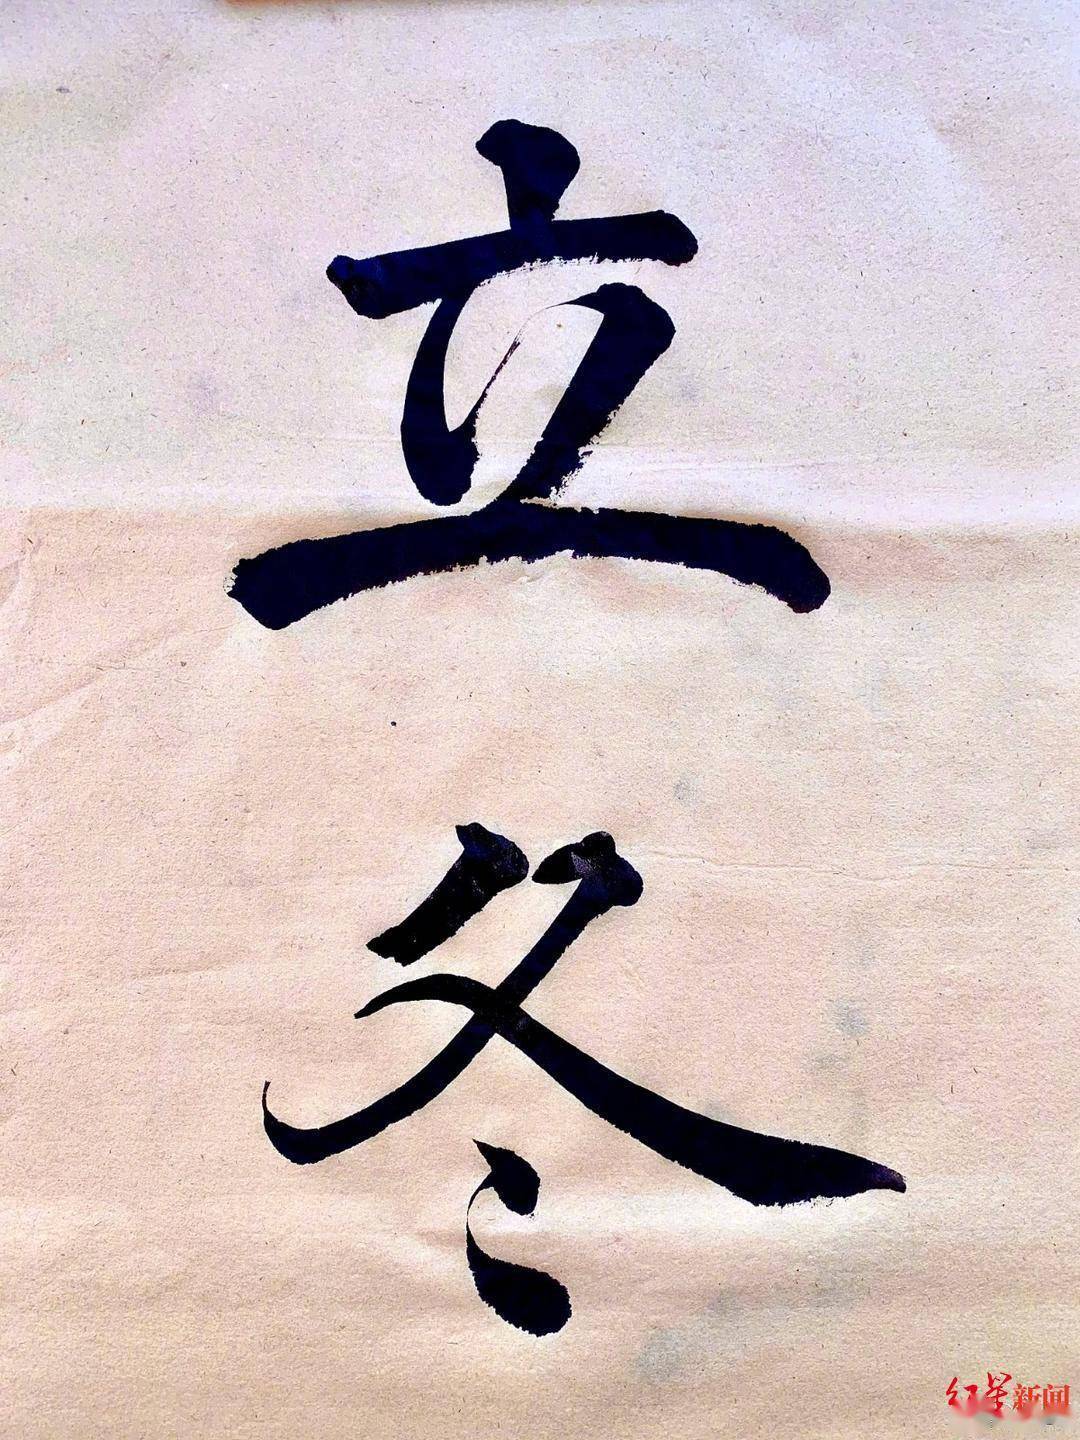 立冬
红星新闻